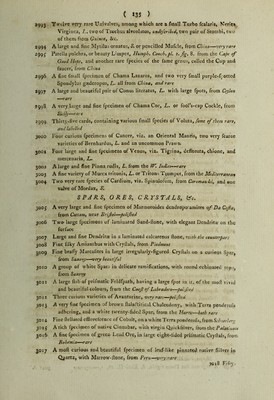 ( 133 )
2993 Twelve very rare Univalves, among which are a small Turbo scalaris, Nerita
Virginea, L. two of Trochus
two of them from Guinea, &c.
2994 A large and fine Mytilus ornatus, & or pencilled Muscle, from China—very rare
2995 Patella pulchra, or beauty Limpet, Humph. Conch. pl. 1. fig. 8. from the Cape of
Good Hope, and another rare species of the same genus, called the Cup and
Saucer, from China
2996 A fine small specimen of Chama Lazarus, and two very small purple-spotted
Spondylus gaderopus, L. all from China, and rare
2997 A large and beautiful pair of Conus litteratus, L. with large spots, from Ceylon
—rare
2998 A very large and fine specimen of Chama Cor, L. or fool's-cap Cockle, from
—rare
2999 Thirty-five cards, containing various small species of Voluta, some of them rare,
and labelled
3000 Four curious specimens of Cancer, viz. an Oriental Mantis, two very scarce
varieties of Bernhardus, L. and an uncommon Prawn
3001 Four large and fine specimens of Venus, viz. Tigrina, deflorata, chione, and
mercenaria, L.
3002 A large and fine Pinna rudis, L. from the W. Indies—rare
3003 A fine variety of Murex tritonis, L. or Triton's Trumpet, from the Mediterranean
3004 Two very rare species of Cardium, viz. from Coromandel, and one
valve of Mordax, S.
SPARS, ORES, CRYSTALS, &c.
3005 A very large and fine specimen of Marmoroides dendrompomiferum of Da Costa,
from Cotham, near Bristol—polished
3006 Two large specimens of laminated Sand-stone, with elegant Dendritæ on the
surface
3007 Large and fine Dendritæ in a laminated calcareous stone, with the counterpart
3008 Fine silky Amianthus with Crystals, from Piedmont
3009 Fine brassy Marcasites in large irregularly-figured Crystals on a curious Spar,
from Saxony—very beautiful
3010 A group of white Spar in delicate ramifications, with mixed coloured tops,
from Saxony
3011 A large slab of prismatic Feldspath, having a large spot in it, of the most vivid
and beautiful colours, from the Coast of Labrador—polished
3012 Three curious varieties of Aventurine, very rare—polished
3013 A very fine specimen of brown Stalactitical Chalcedony, with Terra ponderosa
adhering, and a white twenty-sided Spar, from the Hartz—both rare
3014 Fine stellated efflorescence of Cobalt, on a white Terra ponderosa, from
3015 A rich specimen of native Cinnabar, with virgin Quicksilver, from the Palatinate
3016 A fine specimen of green Lead Ore, in large eight-sided prismatic Crystals, from
—rare
3017 A most curious and beautiful specimen of leaf-like pinnated native Silver in
Quartz, with Marrow-stone, from Peru—very rare
3018 Fifty